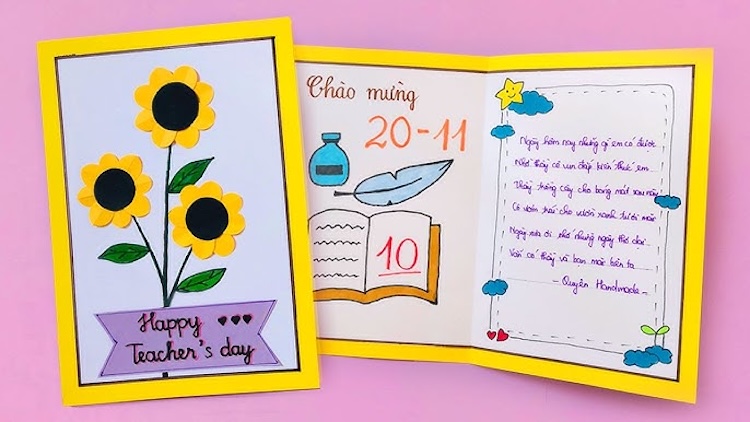 Happy
Teacher's day
Chào mừng
20-11
10
Ngày hôm nay những gì em có được
Nhờ thầy cô vun đắp kiến thức em
Thầy trồng cây cho bóng mát sau này
Cô vốn trẻ cho vườn xanh tươi mát
Ngày xưa ơi nhớ những ngày thơ dại
Vẫn có thầy và bạn mãi bên ta
- Quyên Handmade -